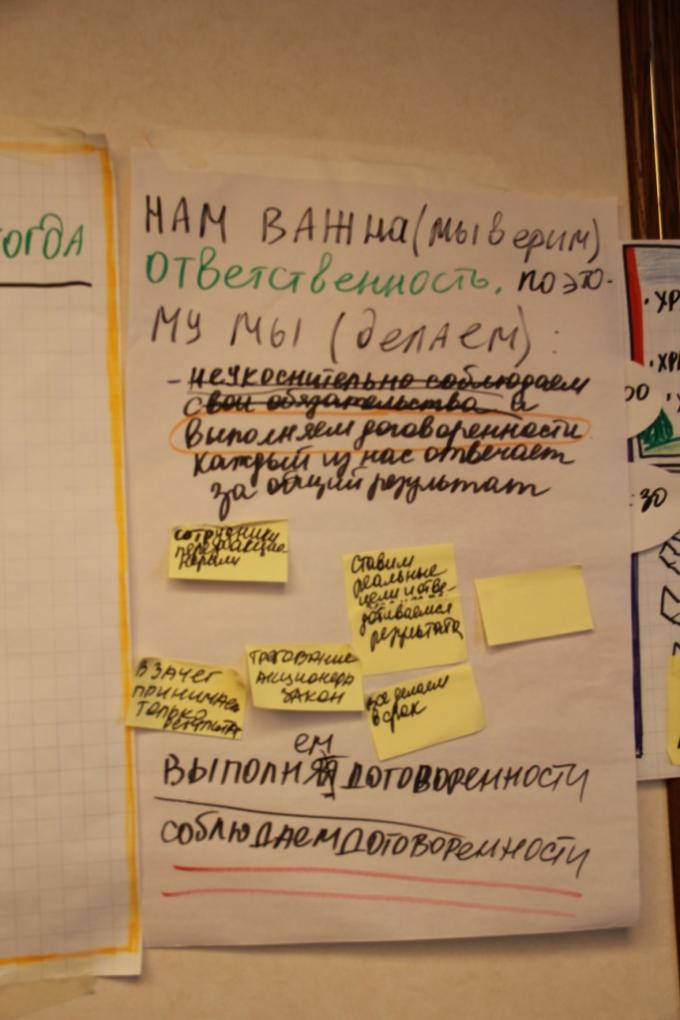 ОГДА
НАМ ВАЖНА (мы верим)
ответственность, поэто-
МУ МЫ (делаем):
- неукоснительно соблюдаем
свои обязательства и
выполняем договоренности
каждый из нас отвечает
за общий результат
сотрудники
нормы
Ставим
реальные
цели и
добиваемся
результата
В ЗАЧЕТ
ПРИНИМАЕМ
ТОЛЬКО
РЕЗУЛЬТАТ
ТРЕБОВАНИЕ
АКЦИОНЕРА
ЗАКОН
все делаем
в срок
ем
ВЫПОЛНЯ ДОГОВОРЕННОСТИ
СОБЛЮДАЕМ ДОГОВОРЕННОСТИ
· ХР
· ХР
00
: 30